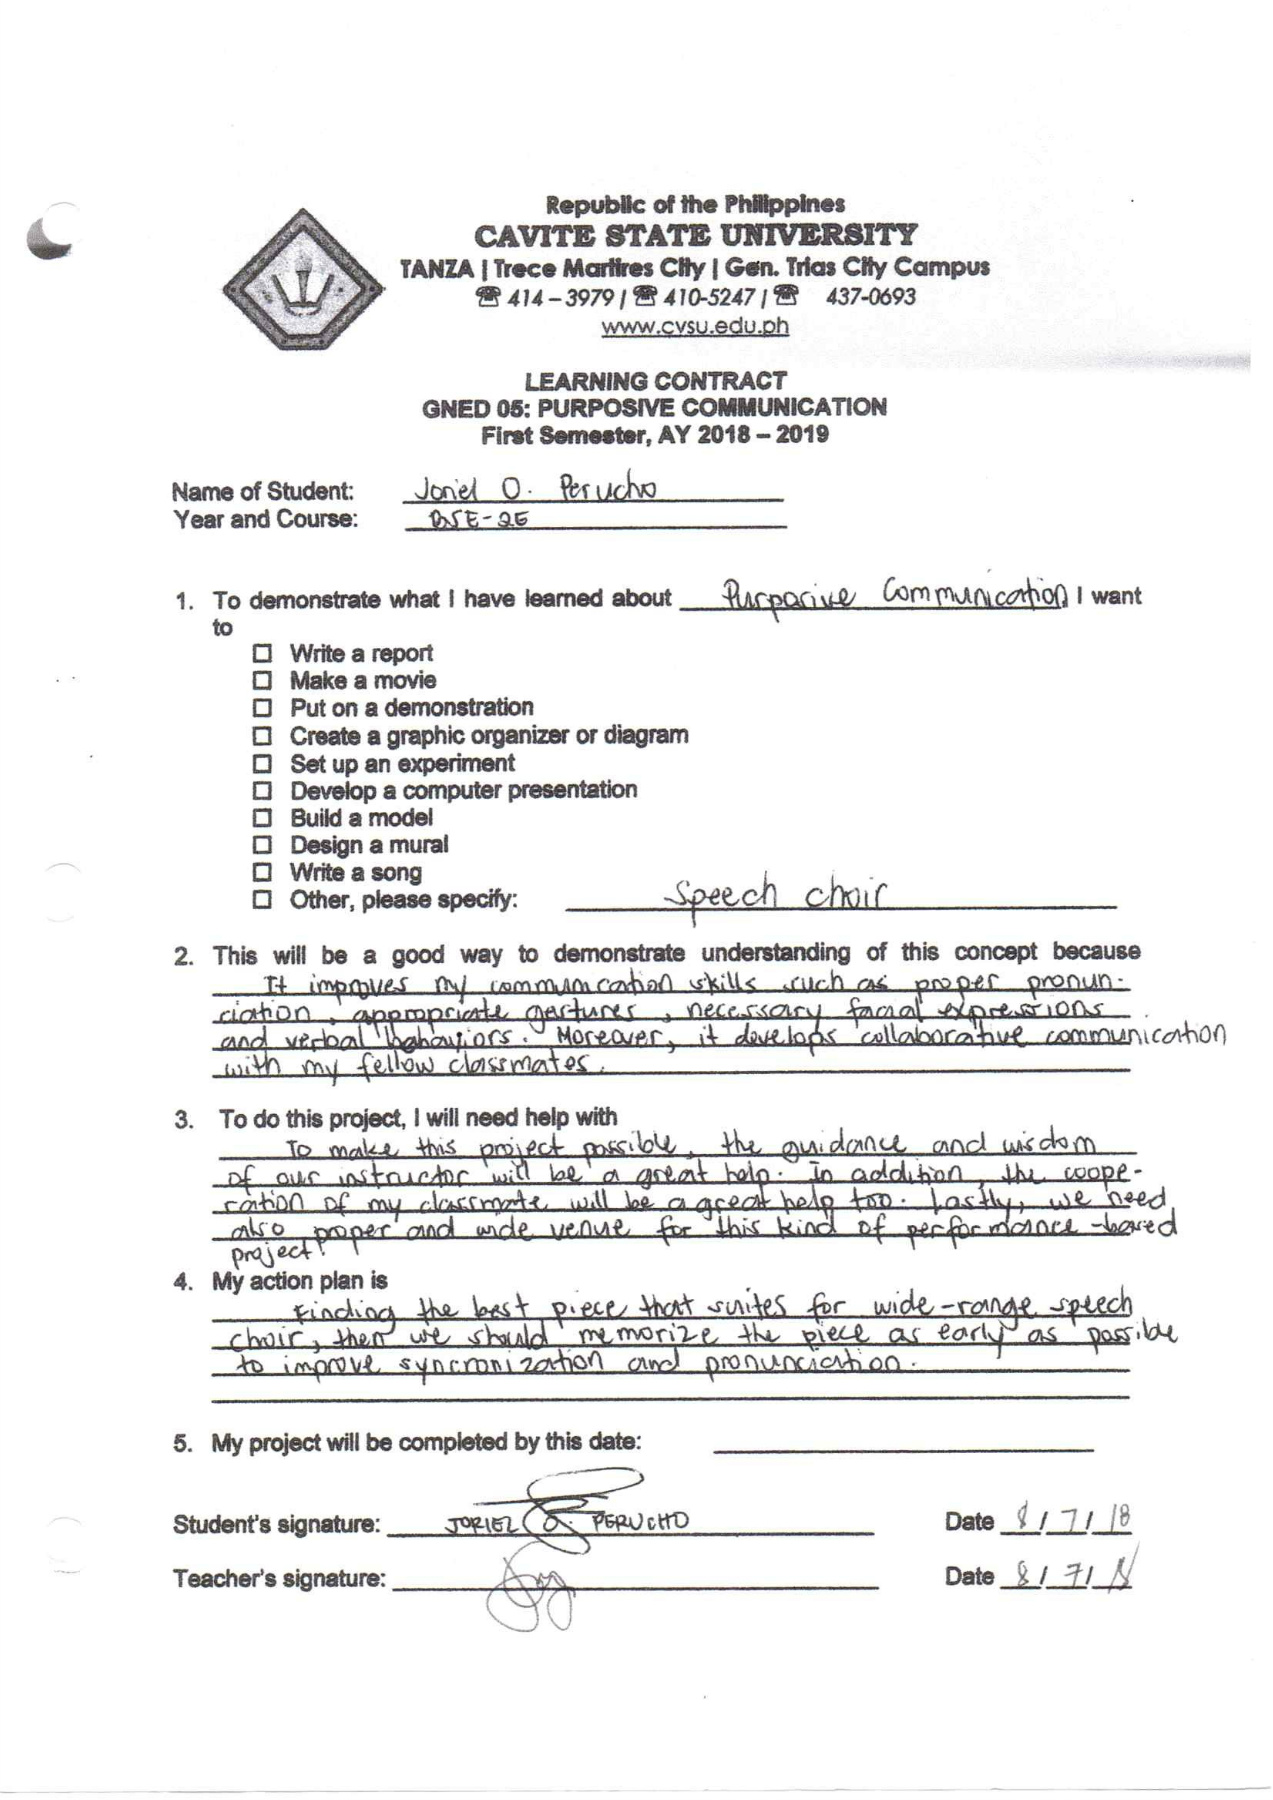 Republic of the Philippines
CAVITE STATE UNIVERSITY
TANZA | Trece Martires City | Gen. Trias City Campus
☎ 414 – 3979 / ☎ 410-5247 / ☎ 437-0693
www.cvsu.edu.ph
LEARNING CONTRACT
GNED 05: PURPOSIVE COMMUNICATION
First Semester, AY 2018 – 2019
Name of Student: Joriel O. Perucho
Year and Course: BSE-2E
1. To demonstrate what I have learned about Purposive Communication I want
to
☐ Write a report
☐ Make a movie
☐ Put on a demonstration
☐ Create a graphic organizer or diagram
☐ Set up an experiment
☐ Develop a computer presentation
☐ Build a model
☐ Design a mural
☐ Write a song
☐ Other, please specify: Speech choir
2. This will be a good way to demonstrate understanding of this concept because
It improves my communication skills such as proper pronun-
ciation, appropriate gestures, necessary facial expressions
and verbal behaviors. Moreover, it develops collaborative communication
with my fellow classmates.
3. To do this project, I will need help with
To make this project possible, the guidance and wisdom
of our instructor will be a great help. In addition, the coope-
ration of my classmate will be a great help too. Lastly, we need
also proper and wide venue for this kind of performance-based
project.
4. My action plan is
Finding the best piece that suites for wide-range speech
choir, then we should memorize the piece as early as possible
to improve syncronization and pronunciation.
5. My project will be completed by this date:
Student's signature: JORIEL O. PERUCHO Date 8/7/18
Teacher's signature: Date 8/7/18